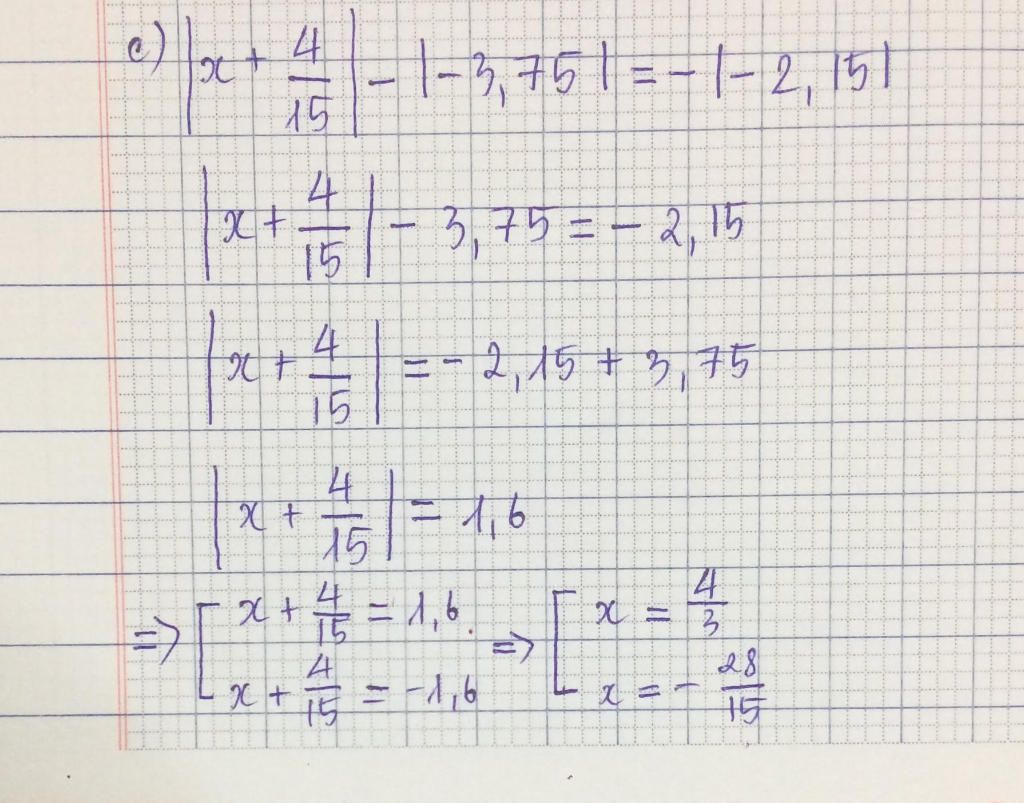 c) |x + 4/15| - |-3,75| = - |-2,15|
|x + 4/15| - 3,75 = - 2,15
|x + 4/15| = - 2,15 + 3,75
|x + 4/15| = 1,6
=> [ x + 4/15 = 1,6 => [ x = 4/3
x + 4/15 = -1,6 x = - 28/15